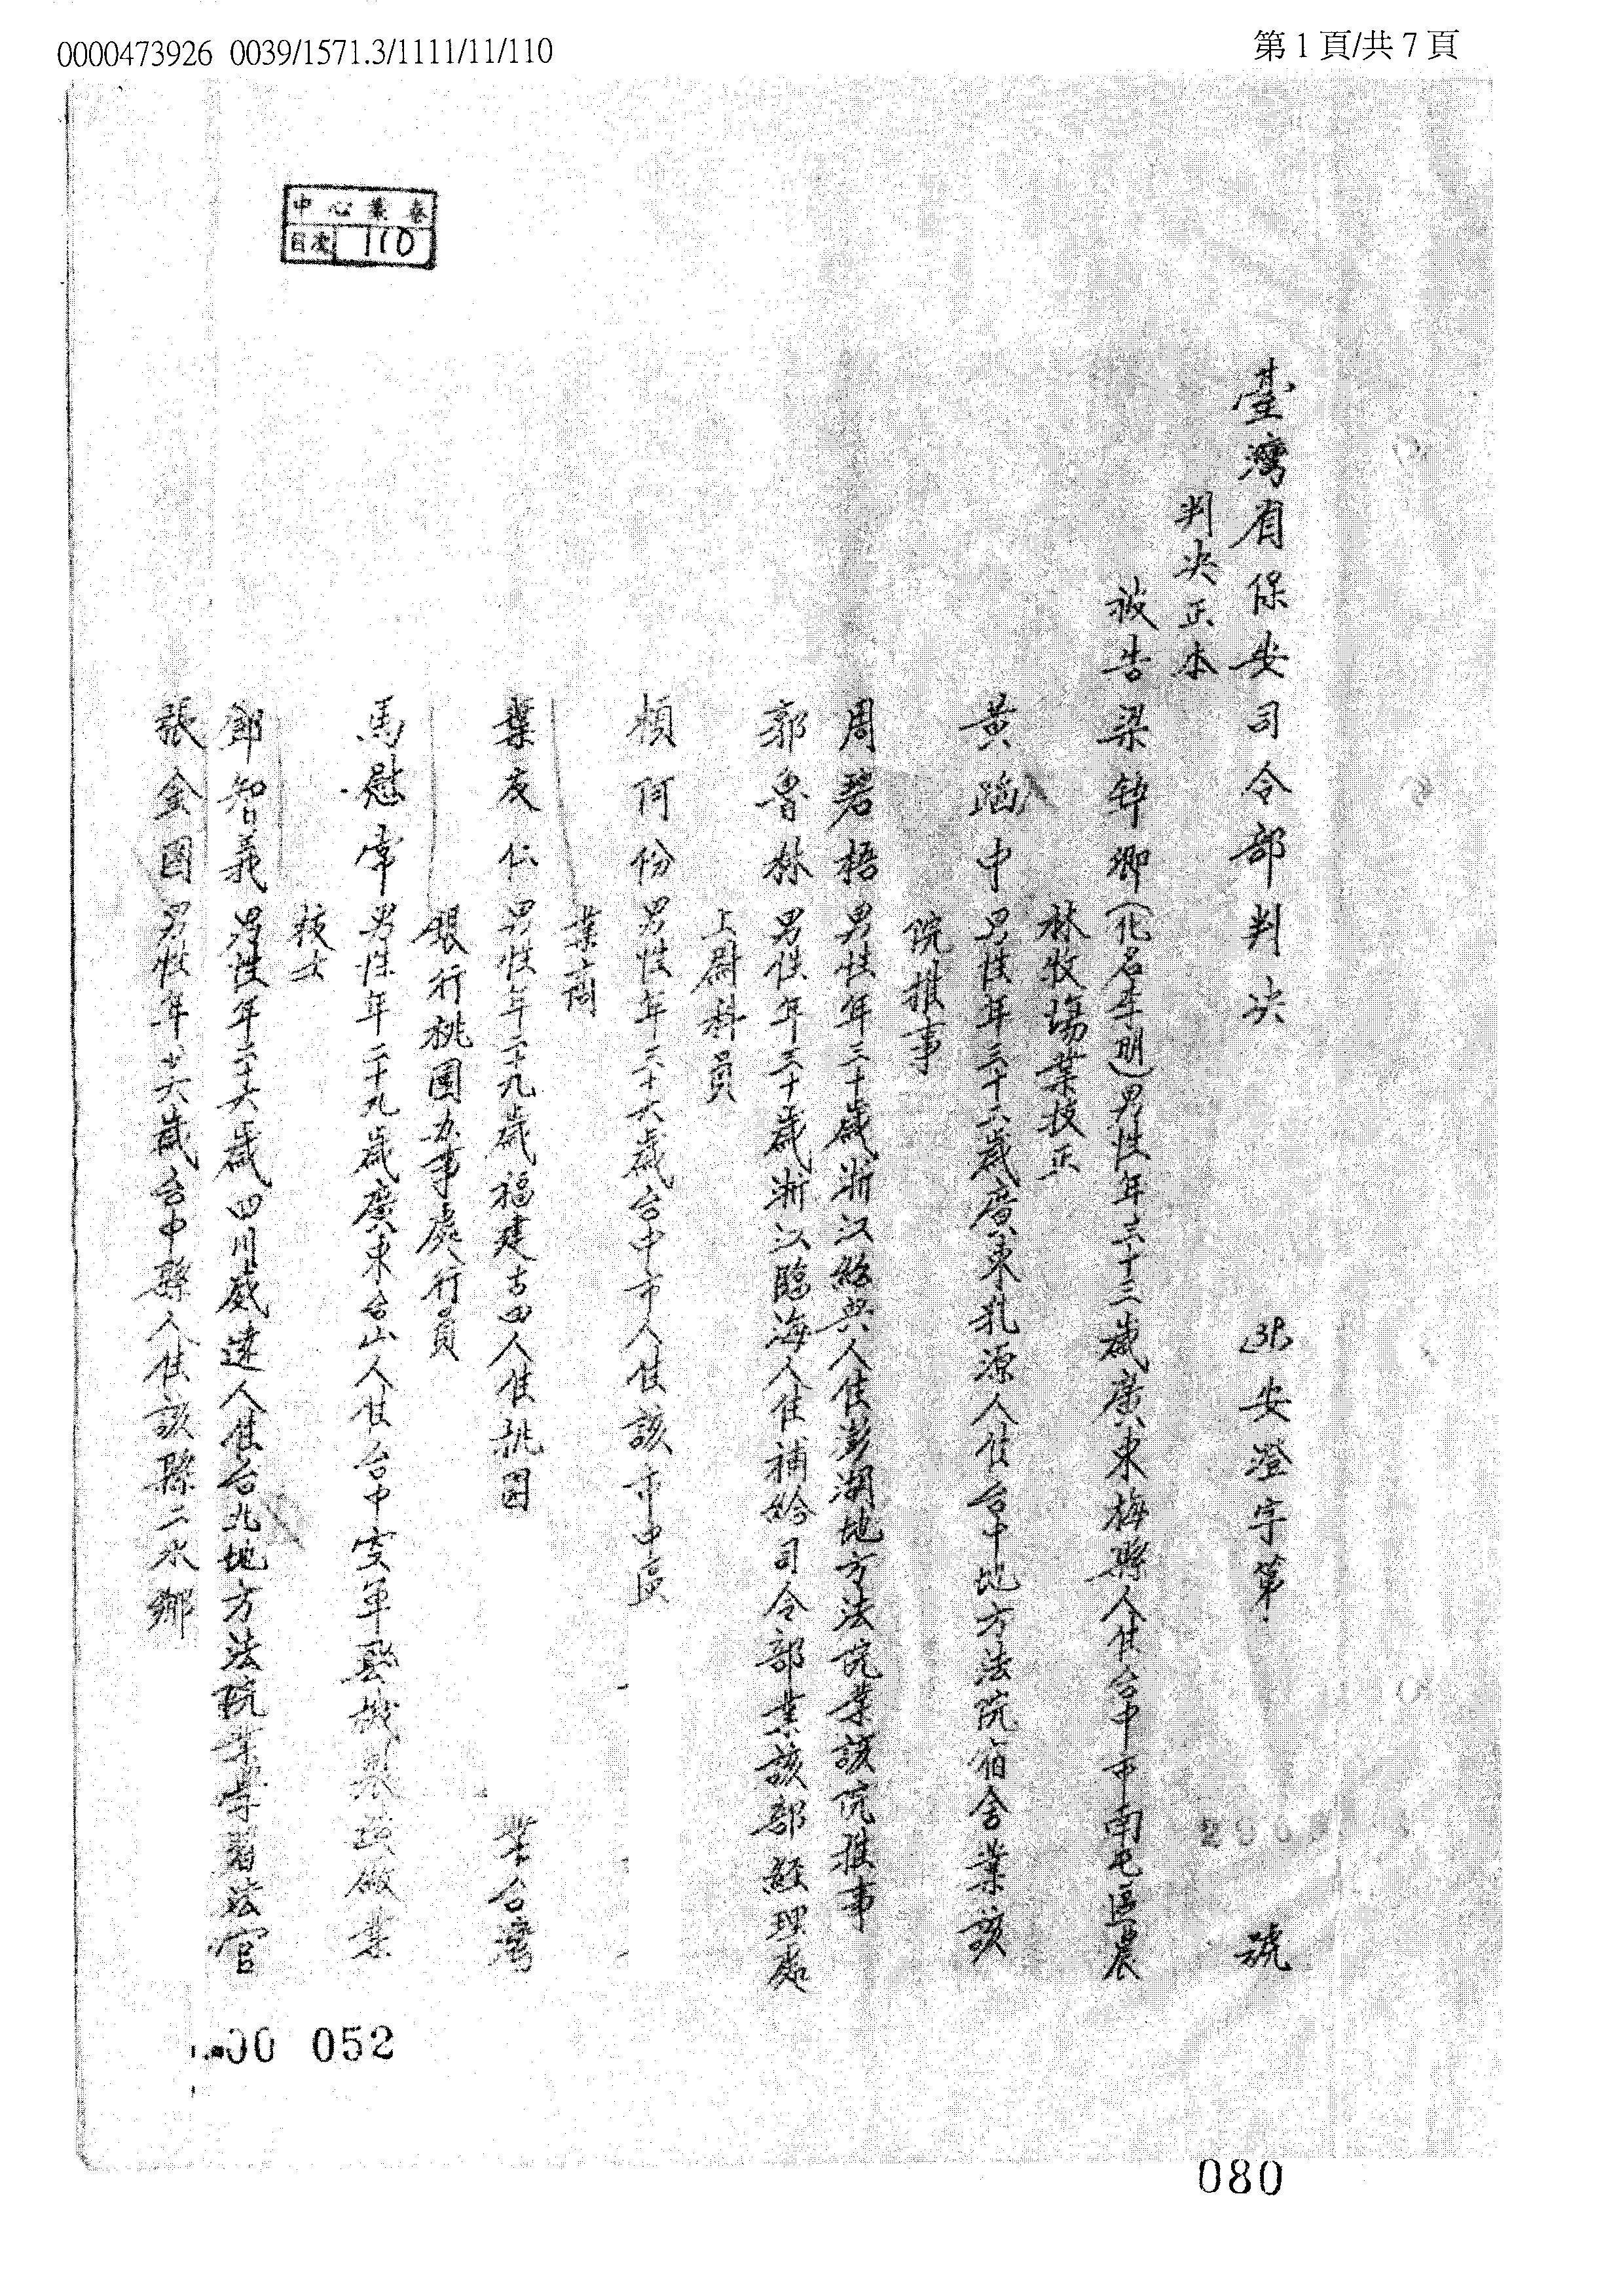 0000473926 0039/1571.3/1111/11/110
第1頁/共7頁
目次 110
臺灣省保安司令部判決 安澄字第 號
判決正本
被告 梁鉀卿(化名李明)男性年三十三歲廣東梅縣人住台中市南屯區農
林牧場業技正
黃蹈中 男性年三十三歲廣東乳源人住台中地方法院宿舍業該
院推事
周碧梧 男性年三十歲浙江紹興人住澎湖地方法院業該院推事
郭魯林 男性年三十歲浙江臨海人住補給司令部業該部經理處
上尉科員
楨何份 男性年三十六歲台中市人住該市中區
業商
葉友仁 男性年二十九歲福建古田人住桃园 業台灣
銀行桃園办事處行員
馬慰常 男性年二十九歲廣東台山人住台中空軍 機製造廠業
技士
鄧智義 男性年二十六歲四川威遠人住台北地方法院業學習法官
張金國 男性年廿六歲台中縣人住該縣二水鄉
00 052
080